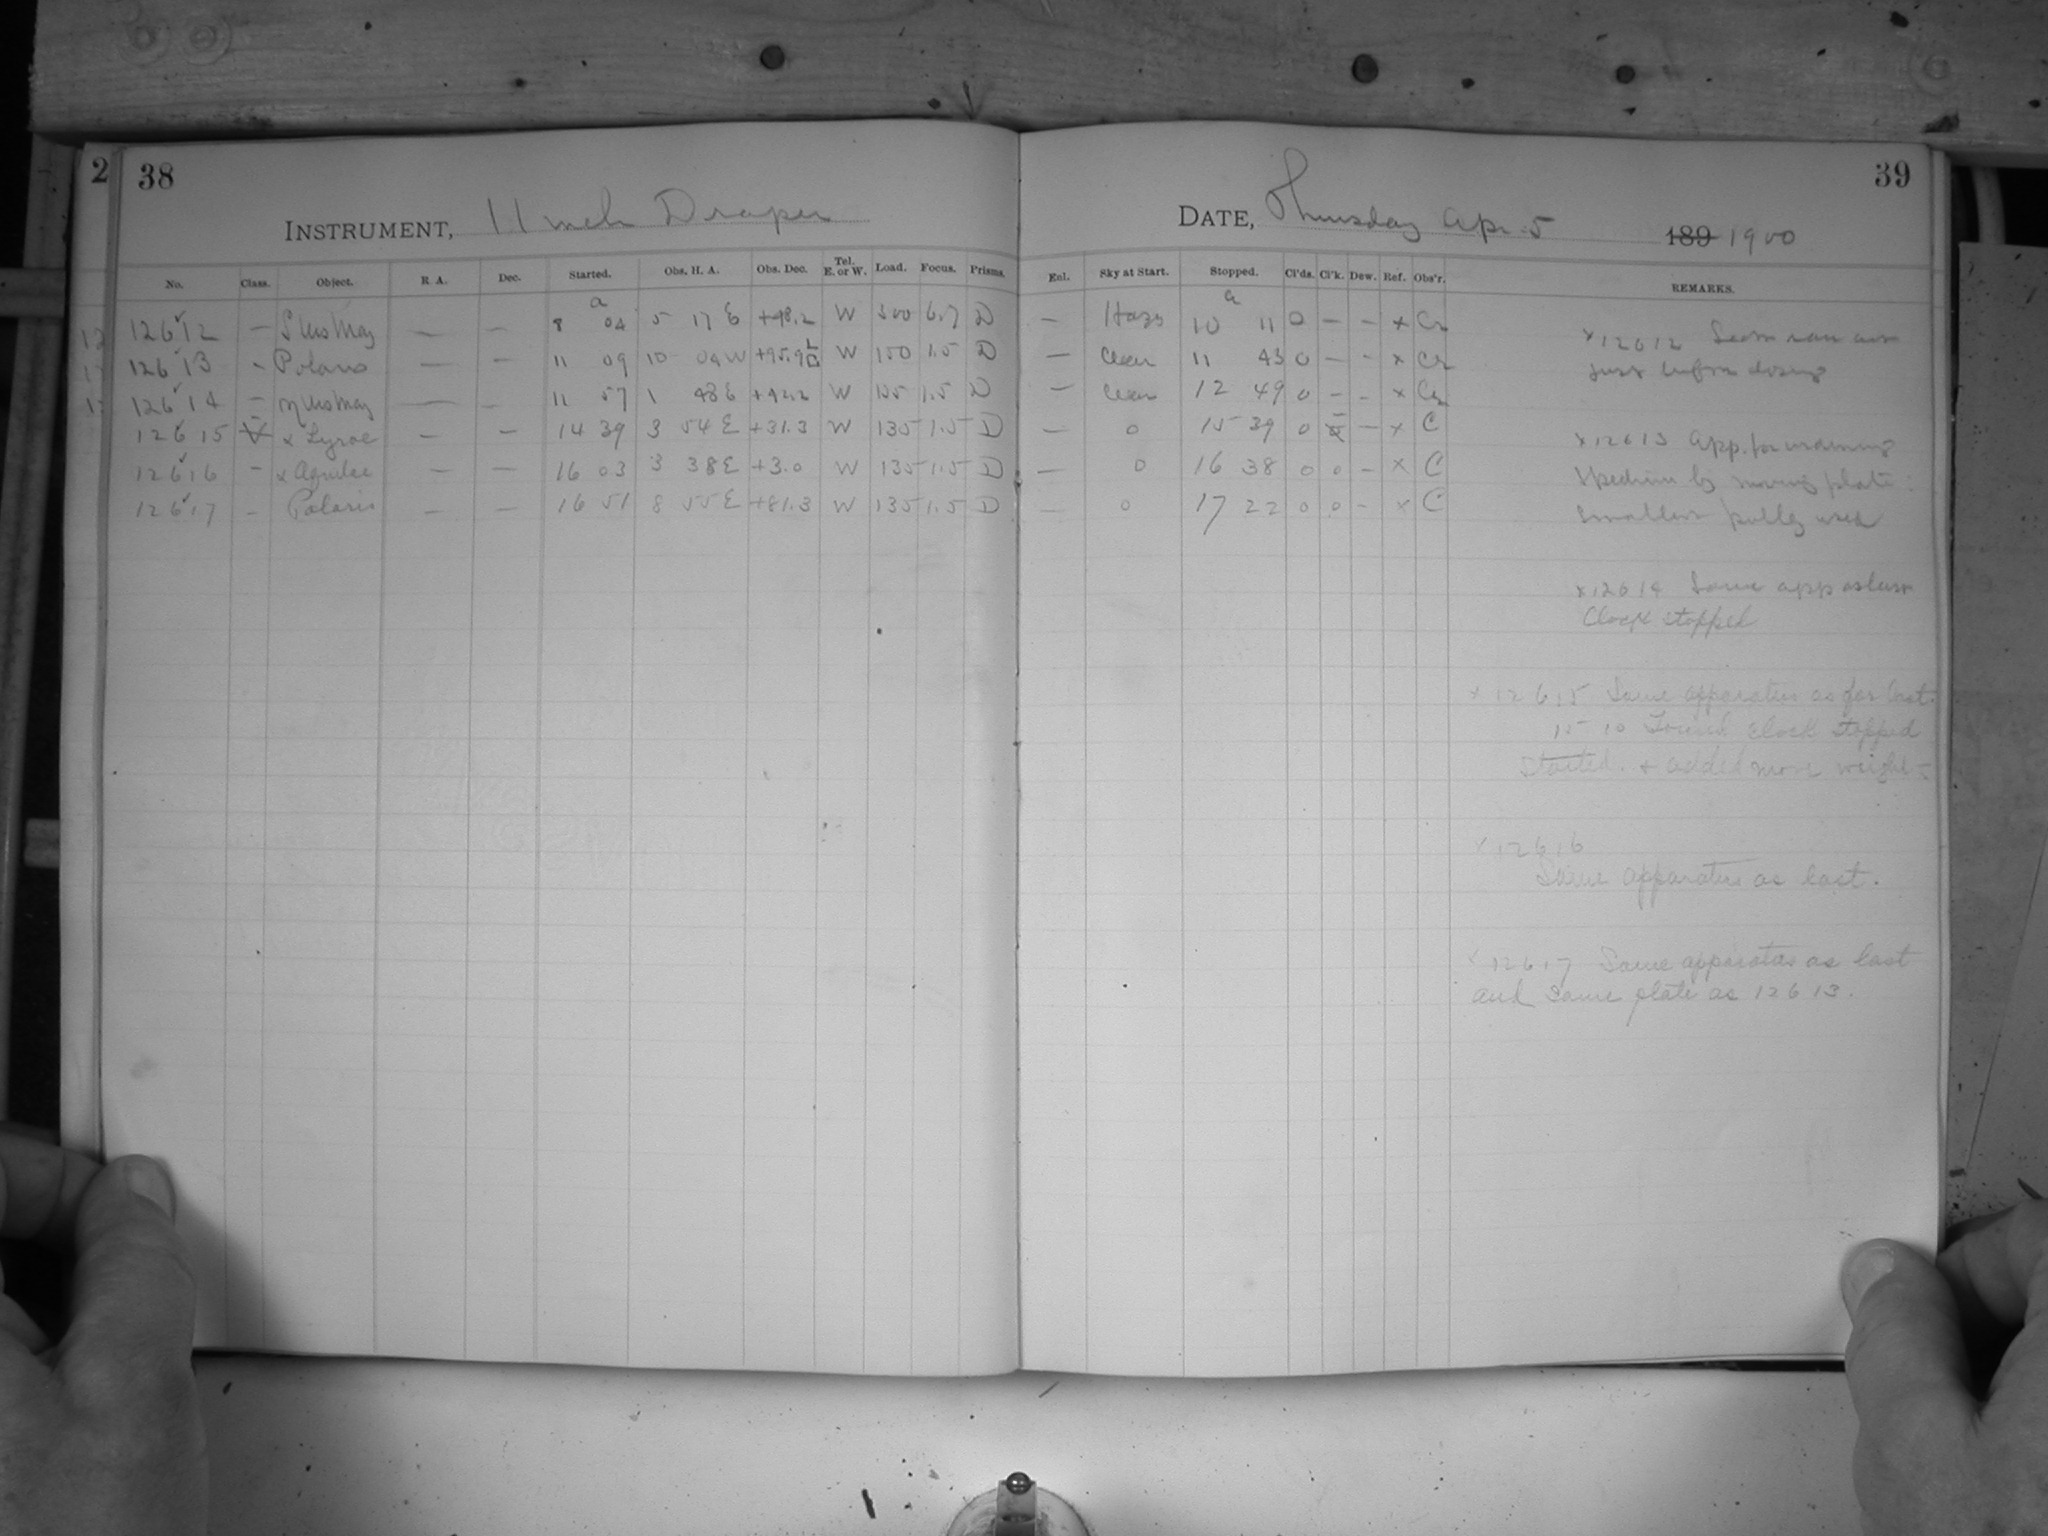 2 38
39
INSTRUMENT, 11 inch Draper
DATE, Thursday Apr. 5 189 1900
No. Class. Object. R. A. Dec. Started. Obs. H. A. Obs. Dec. Tel. E. or W. Load. Focus. Prisms.
Enl. Sky at Start. Stopped. Cl'ds. Cl'k. Dew. Ref. Obs'r. REMARKS.
a
a
12612 — — — 8 04 5 17 E +48.2 W 300 6.7 D — Hazy 10 11 0 — — x Cr
12613 - Polaris — — 11 09 10 09 W +95.9 W 150 1.5 D — Clear 11 43 0 — — x Cr
12614 — — — 11 57 1 48 E +42.2 W 135 1.5 D — Clear 12 49 0 - - x Cr
12615 α Lyrae — — 14 39 3 54 E +31.3 W 135 1.5 D — 0 15 39 0 — x C
12616 - α Aquilae — — 16 03 3 38 E +3.0 W 135 1.5 D — 0 16 38 0 0 - x C
12617 - Polaris — — 16 51 8 55 E +81.3 W 135 1.5 D — 0 17 22 0 0 - x C
x 12612
just before closing
x 12613 App. for
by moving plate.
used
x 12614 Same app as last
Clock stopped
x 12615 Same apparatus as for last.
15 10 Found clock stopped
Started. + added more weight -
x 12616
Same apparatus as last.
x 12617 Same apparatus as last
and same plate as 12613.